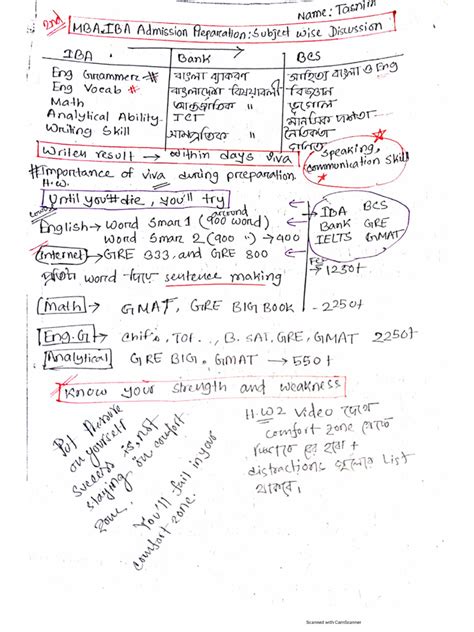 Name: Tasnim
MBA & IBA Admission Preparation: Subject Wise Discussion
IBA Bank BCS
Eng Grammer # বাংলা ব্যাকরণ সাহিত্য বাংলা ও Eng
Eng Vocab # বাংলাদেশ বিষয়াবলী বিজ্ঞান
Math আন্তর্জাতিক " ভূগোল
Analytical Ability ICT মানসিক দক্ষতা
Writing Skill সাম্প্রতিক " নৈতিকতা
Writen result → within days viva
Speaking, communication skill
#Importance of viva during preparation
H.W.
Until you# die, you'll try
English → Word Smar 1 (900 word)
around
Word Smar 2 (900 ") → 400
IBA BCS
Bank GRE
IELTS GMAT
Internet → GRE 333 and GRE 800
→ 1250+
প্রতিটি word দিয়ে sentence making
Math → GMAT, GRE BIG BOOK - 2250+
Eng.G → Chif's, TOF., B. SAT, GRE, GMAT 2250+
Analytical GRE BIG. GMAT → 550+
Know your strength and weakness
Put Pressure
on yourself
success is not
staying on comfort
zone.
You'll fail in your
comfort zone.
H.W2 video দেখে
comfort zone থেকে
হবে +
distractions গুলোর List
থাকবে।
Scanned with CamScanner